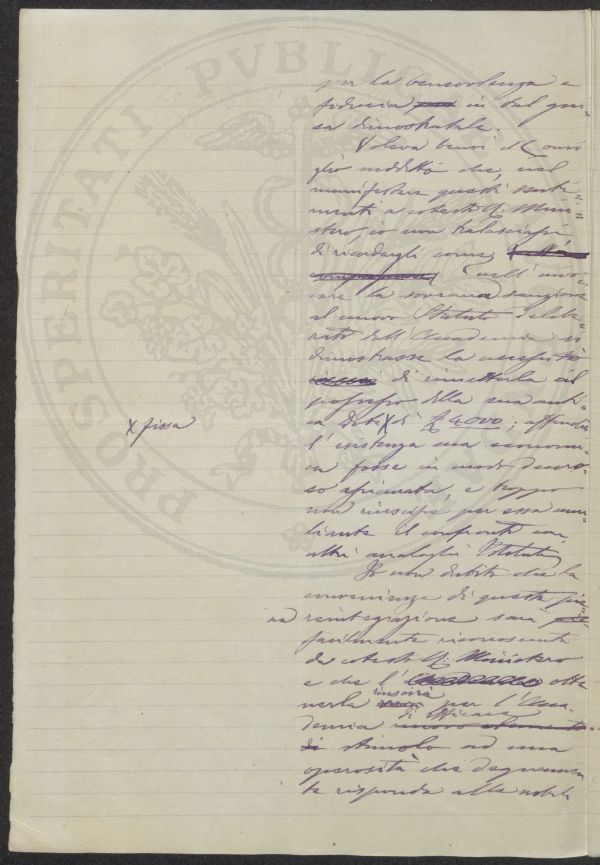 PROSPERITATI PVBLICAE
per la benevolenza e
fiducia in tal gui-
sa dimostratale.
Voleva bensì il Consi-
glio suddetto che, nel
manifestare questi senti-
menti a codesto R. Mini-
stero, io non tralasciassi
di ricordargli come,
nell'invo-
care la sovrana sanzione
al nuovo Statuto delibe-
rato dall'Accademia si
dimostrasse la necessità
di rimetterla al
possesso della sua anti-
ca dote X di £ 4000; affinchè
X fissa
l'esistenza sua economi-
ca fosse in modo decoro-
so assicurata, e troppo
non riuscisse per essa umi-
liante il confronto con
altri analoghi Istituti.
Io non dubito che la
convenienza di questa
reintegrazione sarà
facilmente riconosciuta
da codesto R. Ministero
e che l'otte-
nerla riuscirà per l'Acca-
demia di efficace
stimolo ad una
operosità che degnamen-
te risponda alle nobili